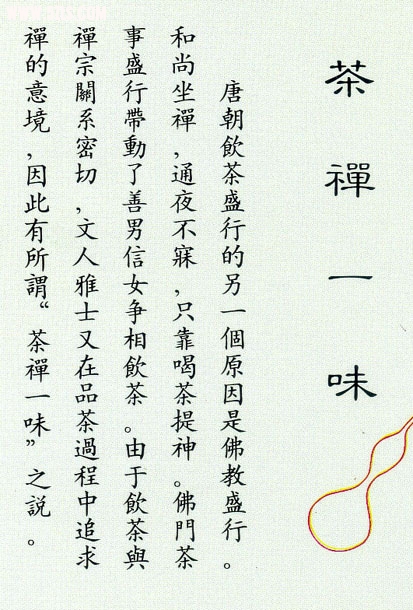 茶禪一味
唐朝飲茶盛行的另一個原因是佛教盛行。
和尚坐禪，通夜不寐，只靠喝茶提神。佛門茶
事盛行帶動了善男信女争相飲茶。由于飲茶與
禪宗關系密切，文人雅士又在品茶過程中追求
禪的意境，因此有所謂“茶禪一味”之説。